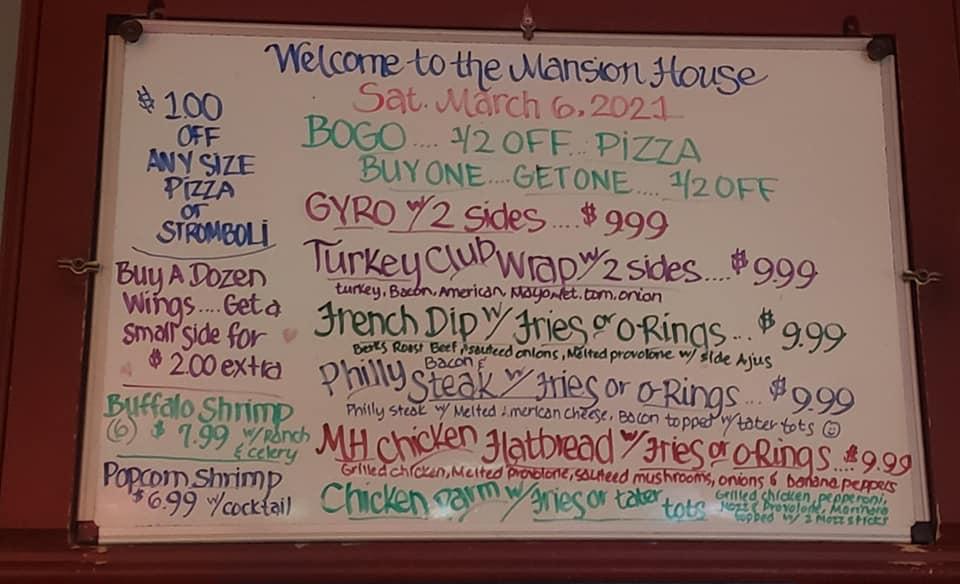 Welcome to the Mansion House
Sat. March 6, 2021
$1.00
OFF
ANY SIZE
PIZZA
or
STROMBOLI
Buy A Dozen
Wings.... Get a
small side for
$2.00 extra
Buffalo Shrimp
(6) $7.99 w/Ranch
& celery
Popcorn Shrimp
$6.99 w/cocktail
BOGO.... 1/2 OFF... PIZZA
BUY ONE... GET ONE.... 1/2 OFF
GYRO w/ 2 sides.... $9.99
Turkey Club Wrap w/ 2 sides.... $9.99
turkey, Bacon, American, Mayo, let. tom. onion
French Dip w/ Fries or O-Rings... $9.99
Berks Roast Beef, sauteed onions, Melted provolone w/ side Ajus
Bacon &
Philly Steak w/ Fries or O-Rings... $9.99
Philly steak w/ Melted American cheese, Bacon topped w/ tater tots ☺
MH Chicken Flatbread w/ Fries or O-Rings... $9.99
Grilled chicken, Melted provolone, sauteed mushrooms, onions & banana peppers
Chicken parm w/ Fries or tater tots
Grilled chicken, pepperoni,
Mozz & Provolone, Marinara
topped w/ 2 Mozz sticks